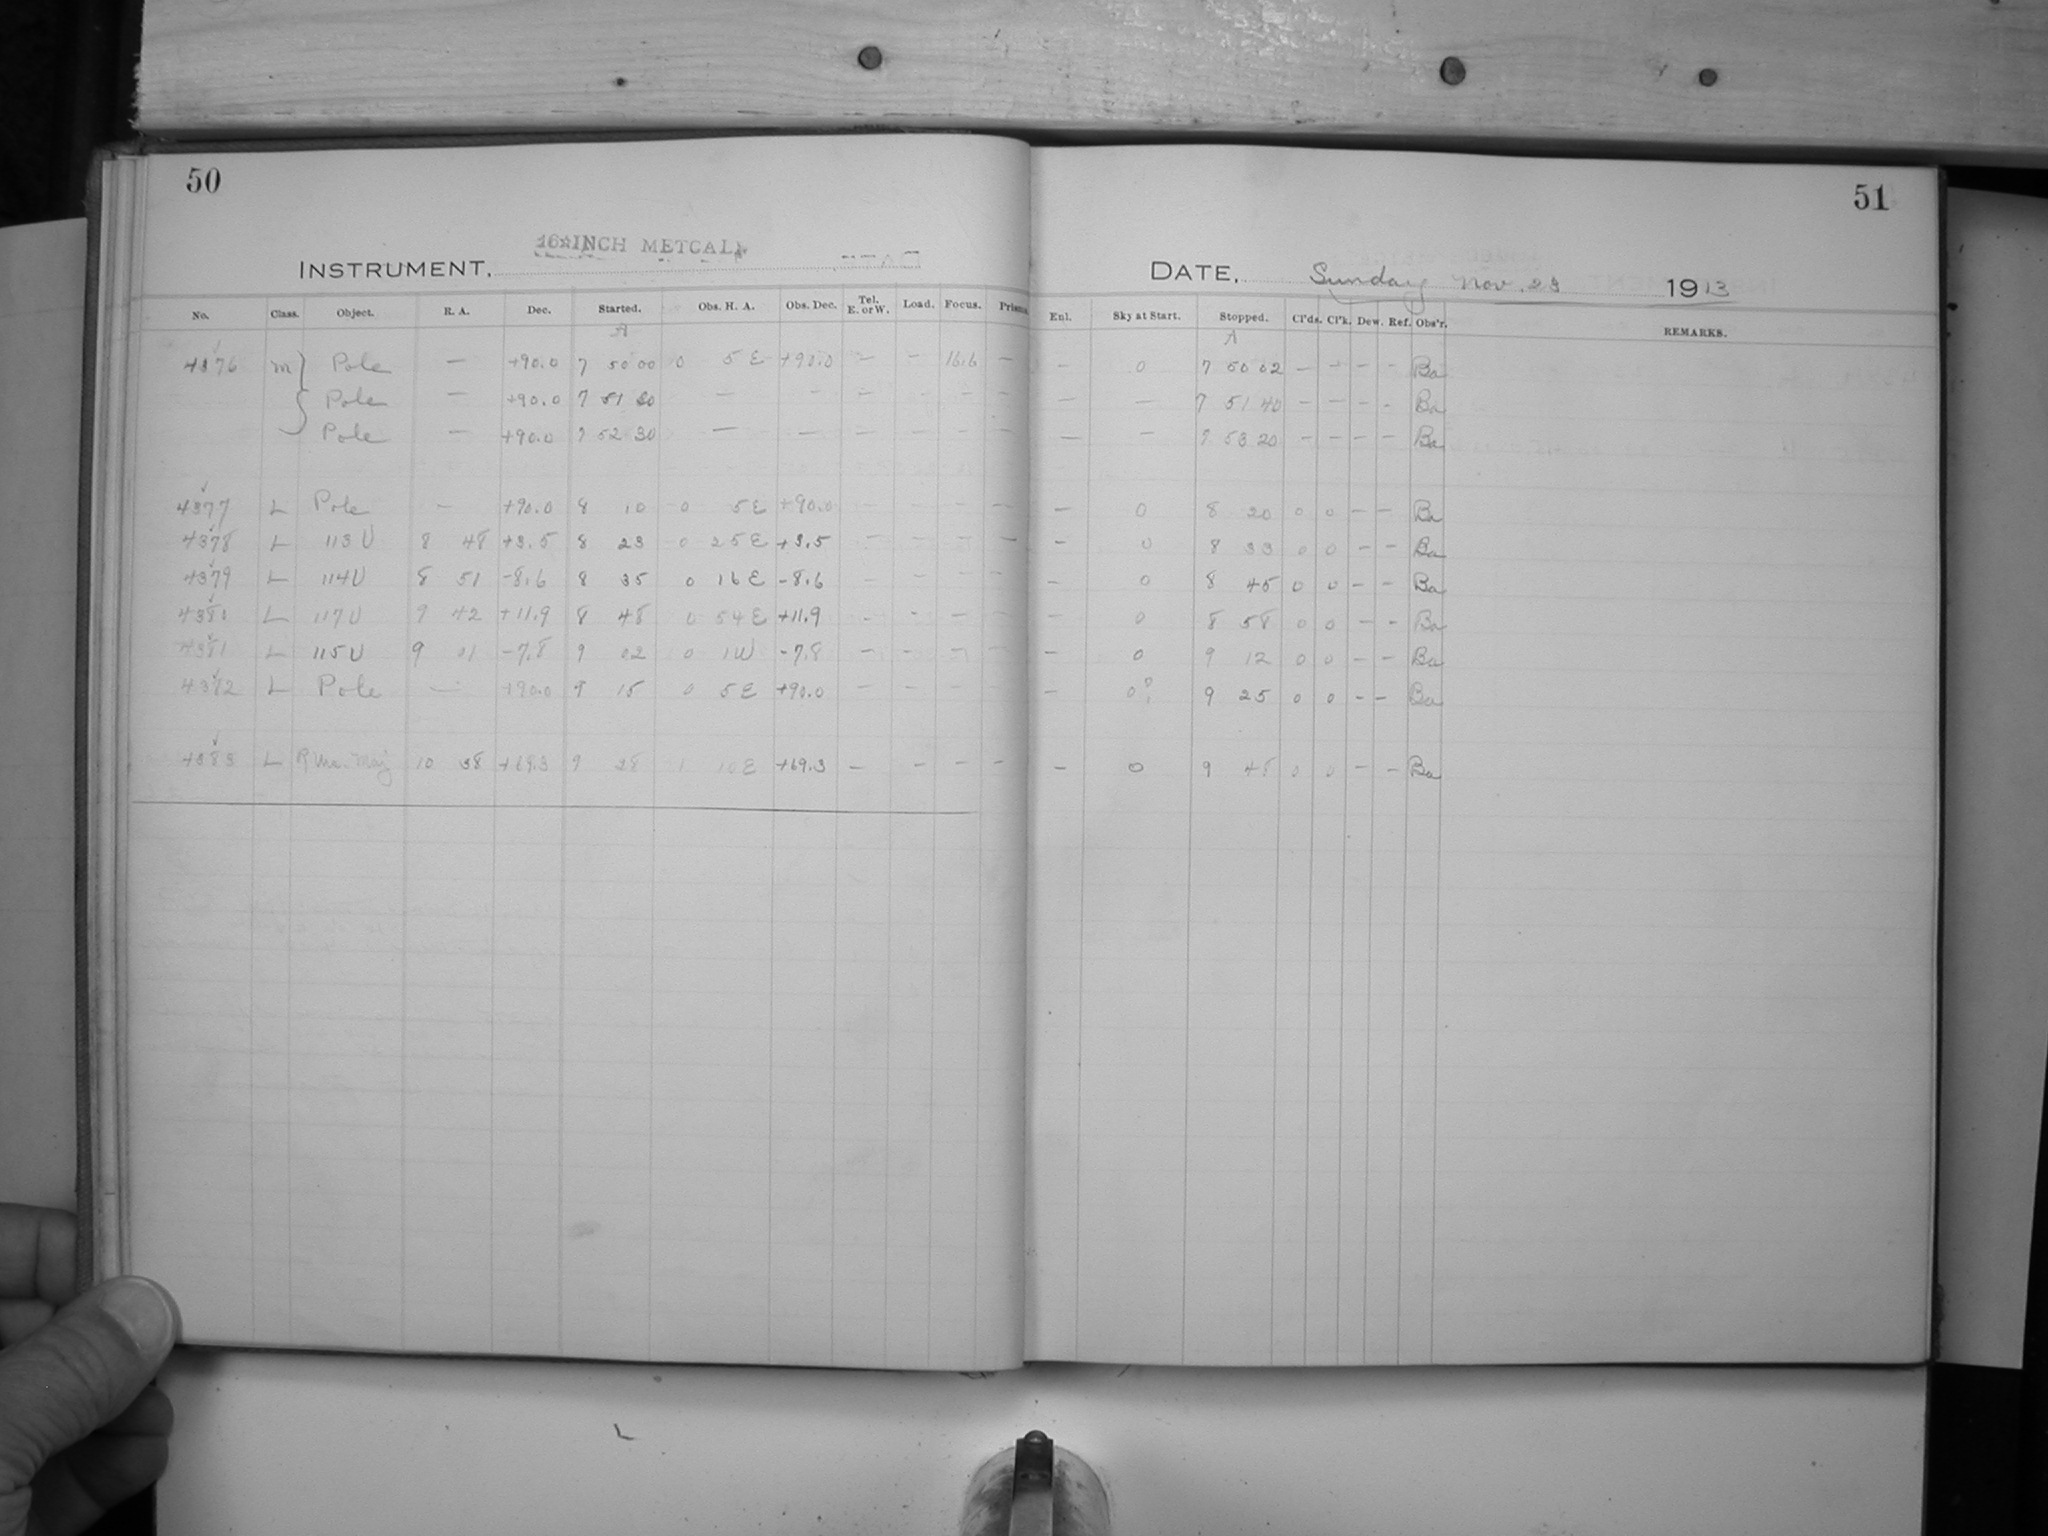 50
51
16-INCH METCALF
INSTRUMENT,
DATE, Sunday Nov. 23 1913
No. Class. Object. R. A. Dec. Started. Obs. H. A. Obs. Dec. Tel. E. or W. Load. Focus. Prisms. Enl. Sky at Start. Stopped. Cl'ds. Cl'k. Dew. Ref. Obs'r. REMARKS.
4376 M } Pole — +90.0 7 50 00 0 5 E +90.0 — — 16.6 — — 0 7 50 02 — — — — Ba
Pole — +90.0 7 51 20 — — — — — — — — 7 51 40 — — — — Ba
Pole — +90.0 7 52 30 — — — — — — — — 7 53 20 — — — — Ba
4377 L Pole — +90.0 8 10 0 5 E +90.0 — — — — — 0 8 20 0 0 — — Ba
4378 L 113 U 8 48 +3.5 8 23 0 25 E +3.5 — — — — — 0 8 33 0 0 — — Ba
4379 L 114 U 8 51 -8.6 8 35 0 16 E -8.6 — — — — — 0 8 45 0 0 — — Ba
4380 L 117 U 9 42 +11.9 8 48 0 54 E +11.9 — — — — — 0 8 58 0 0 — — Ba
4381 L 115 U 9 01 -7.8 9 02 0 1 W -7.8 — — — — — 0 9 12 0 0 — — Ba
4382 L Pole — +90.0 9 15 0 5 E +90.0 — — — — — 0? 9 25 0 0 — — Ba
4383 L R Urs. Maj 10 38 +69.3 9 28 1 10 E +69.3 — — — — — 0 9 48 0 0 — — Ba